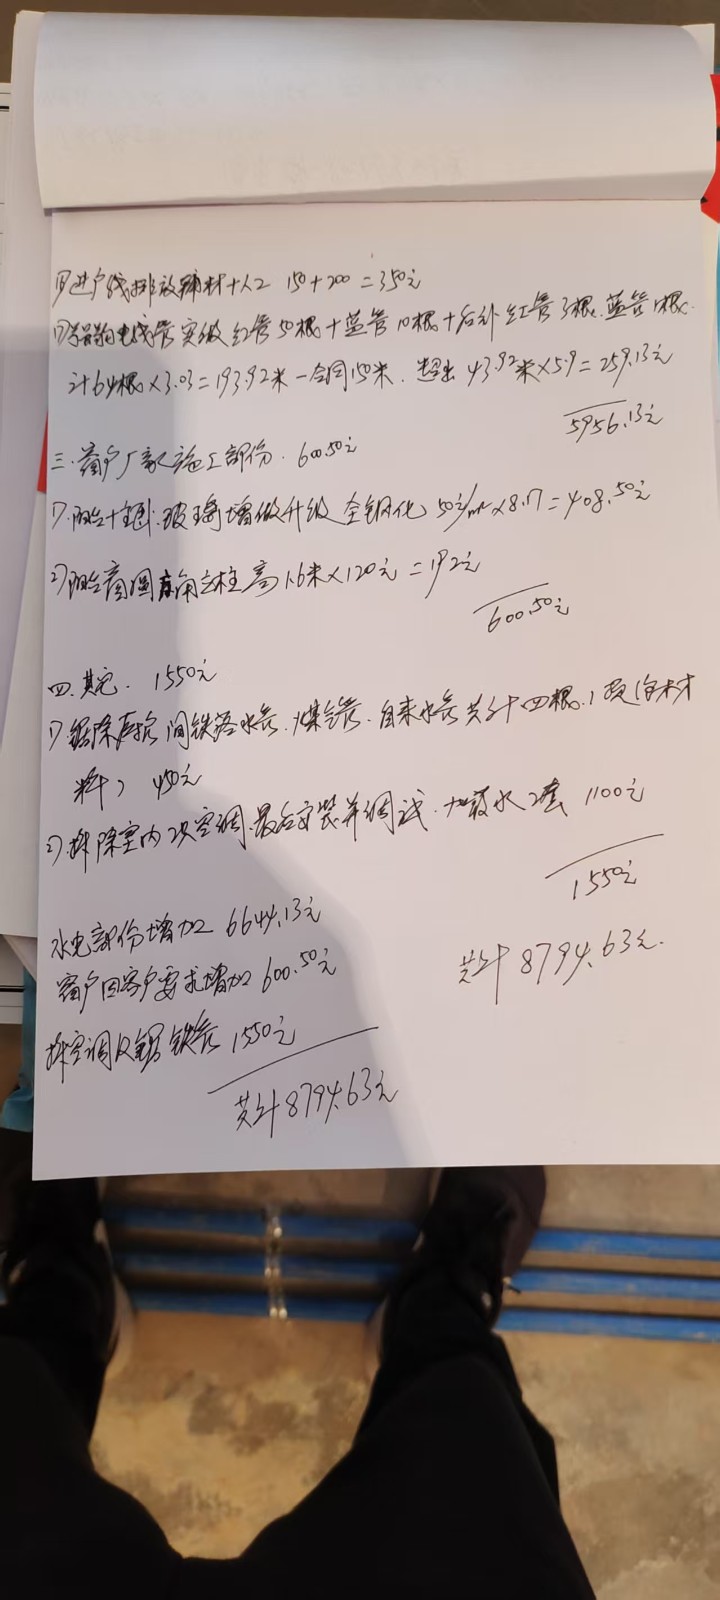 进户线排放辅材+人工 150+200=350元
电线管实做 红管50根+蓝管10根+后补红管3根、蓝管1根
计64根×3.03=193.92米-合同150米、超出43.92米×5.9=259.13元
5956.13元
三、窗户厂家施工部份、600.50元
1)、阳台+主卧、玻璃增做升级全钢化 50元/m²×8.17=408.50元
2)阳台窗圆直角立柱高1.6米×120元=192元
600.50元
四、其它、1550元
1)锯除 间铁落水管、煤气管、自来水管共计四根、(现
料) 450元
2)、拆除室内2次空调、最后安装并调试、加 水2套 1100元
1550元
水电部份增加 6644.13元
窗户因客户要求增加600.50元
共计8794.63元
拆空调及锯铁管 1550元
共计8794.63元